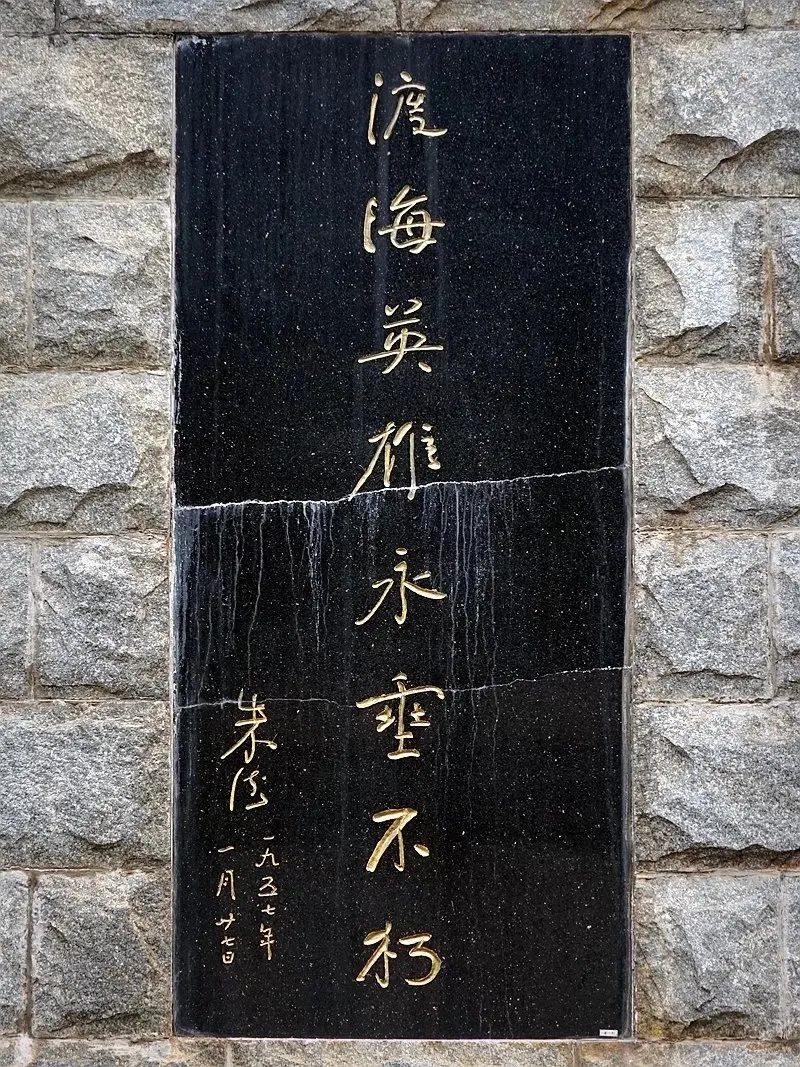 渡海英雄永垂不朽
朱德
一九五七年
一月廿七日